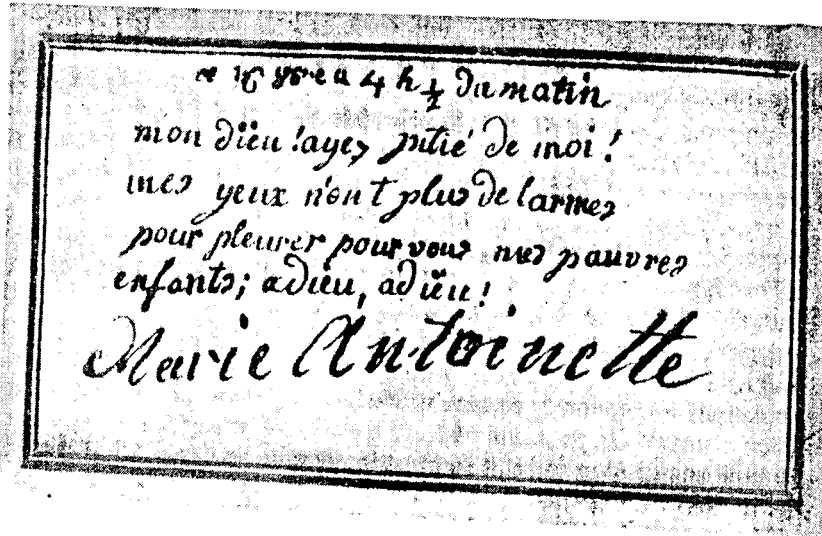 ce 16 8bre a 4 h ½ du matin
mon dieu ! ayez pitié de moi !
mes yeux n'ont plus de larmes
pour pleurer pour vous mes pauvres
enfants; adieu, adieu !
Marie Antoinette